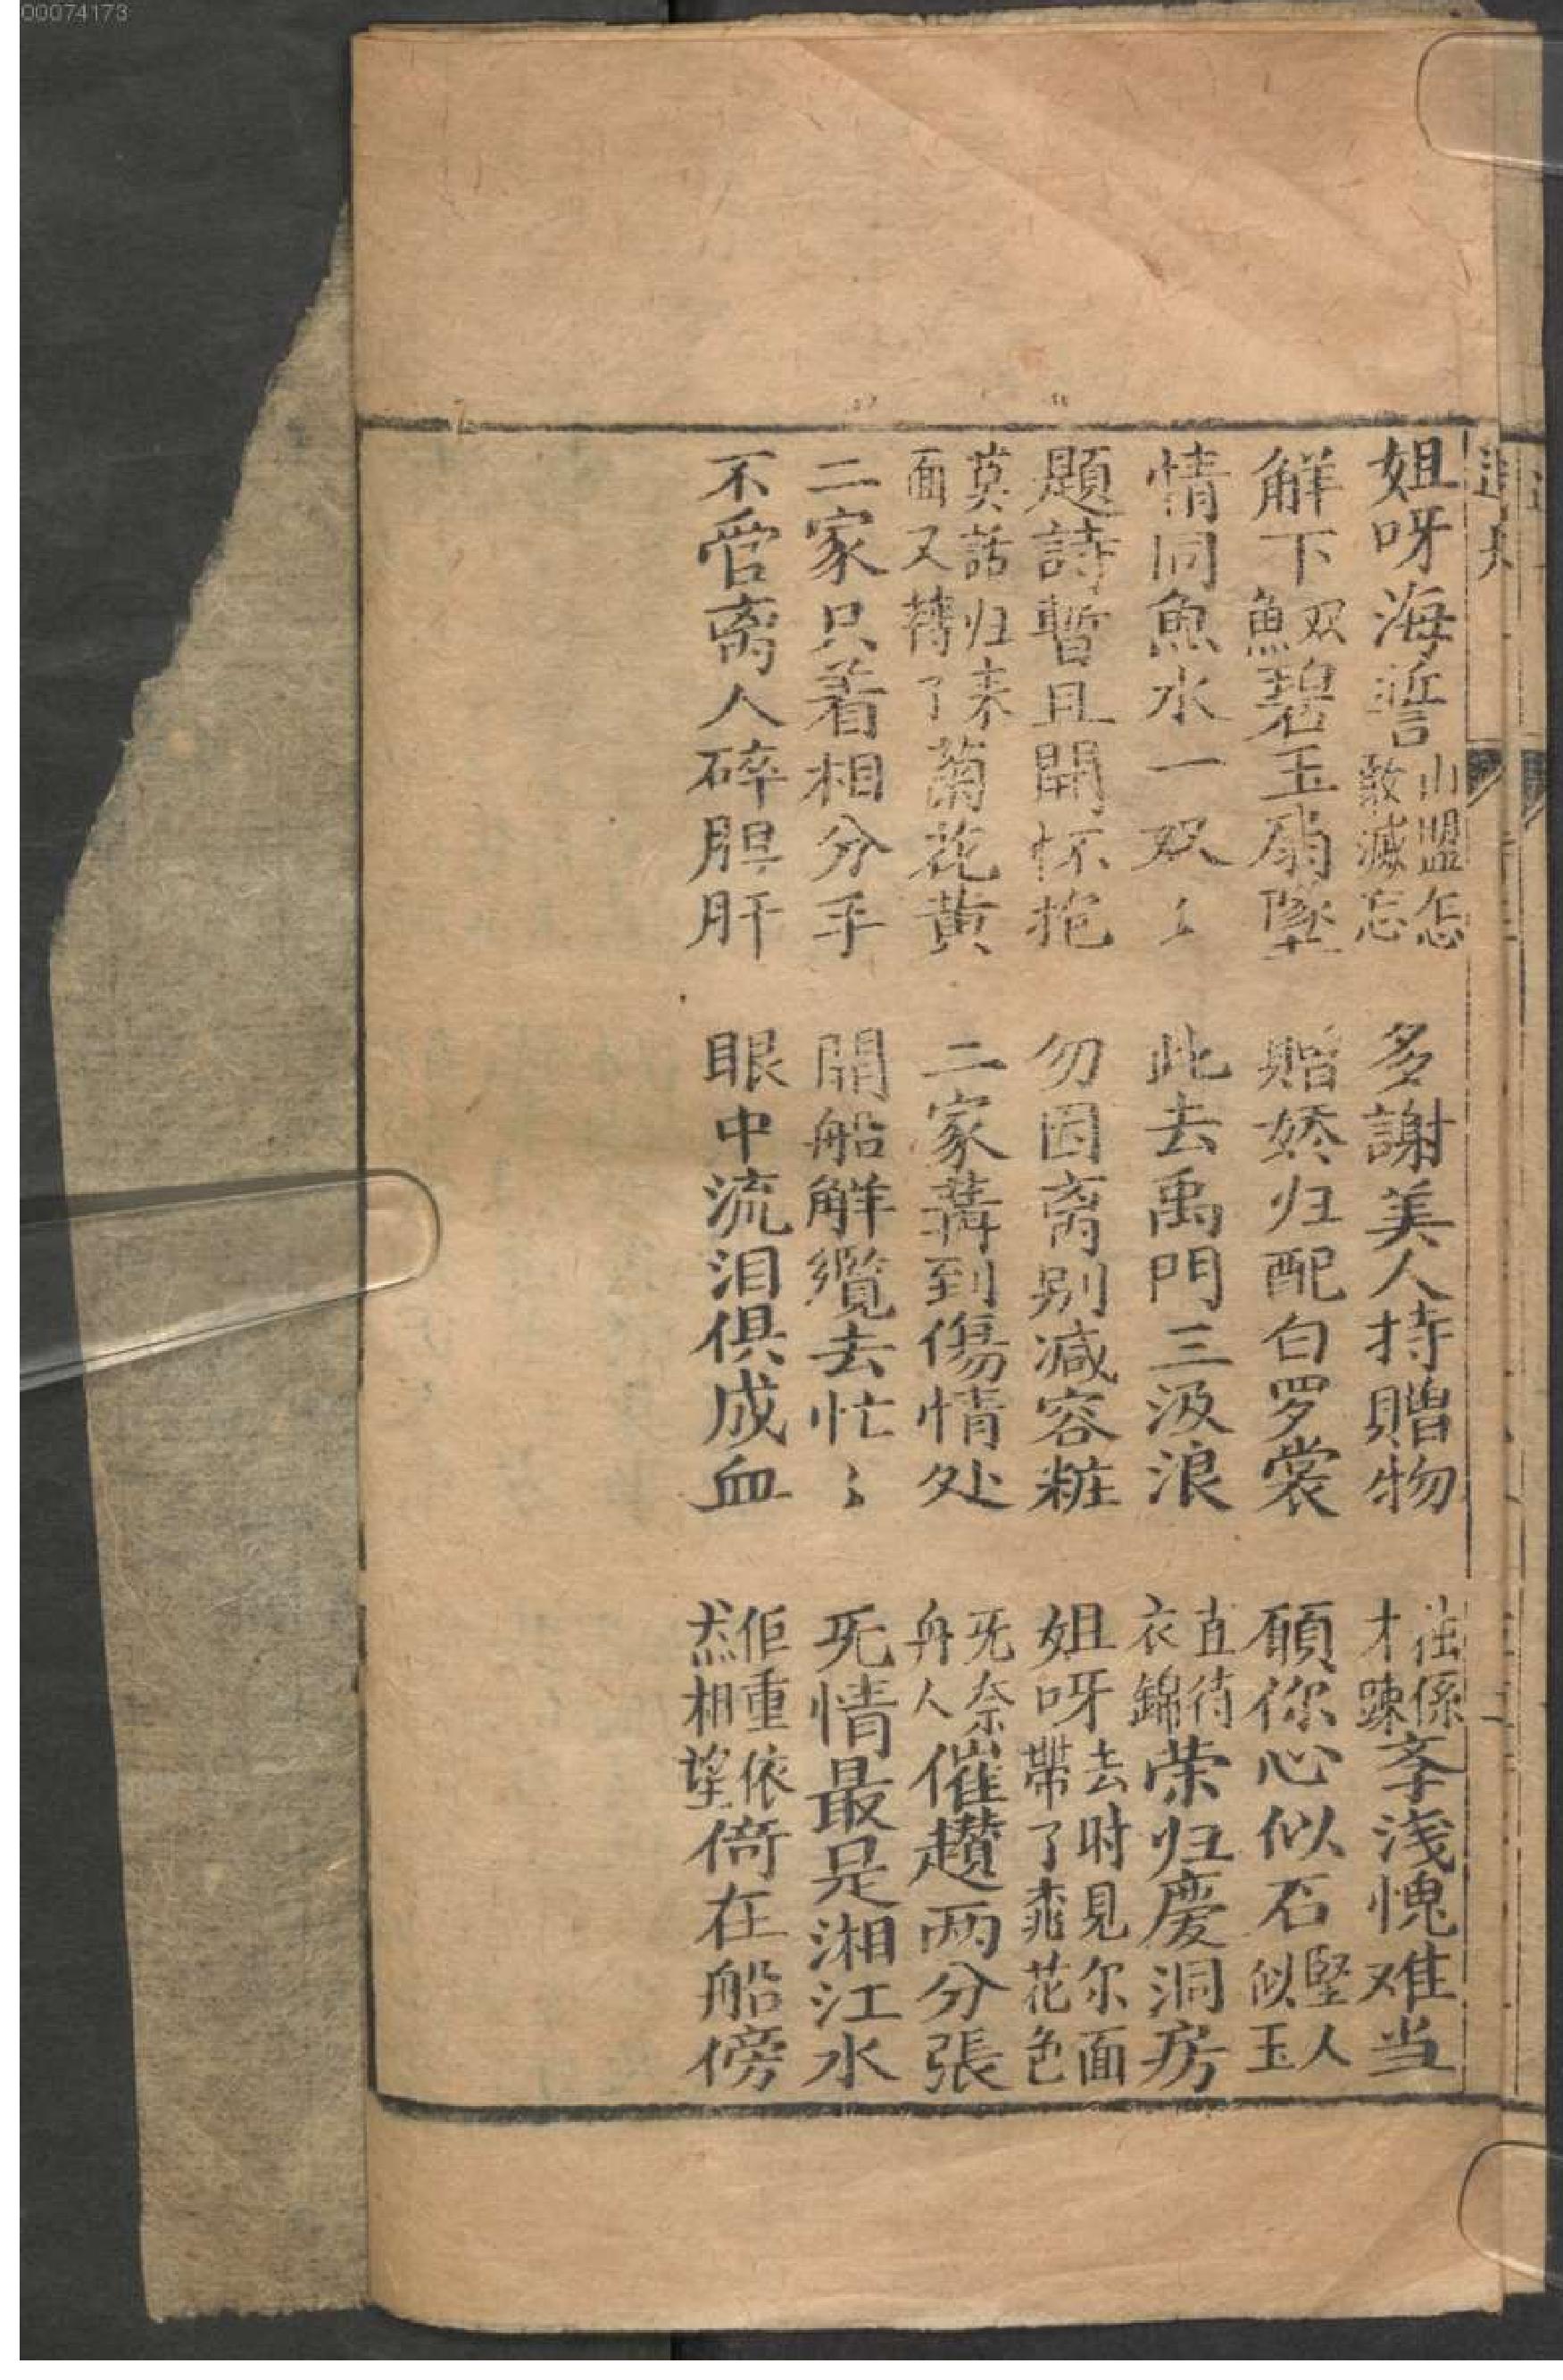 00074173
姐呀海誓山盟怎敢滅忘 多謝美人持贈物 在係才踈李浅愧难当
觧下双魚碧玉扇墜 賠娇归配白罗裳 願你心似石堅人似玉
情同魚水一双〻 此去禹門三汲浪 直待衣錦荣归慶洞房
題詩暫且開怀抱 勿因离别减容粧 姐呀去时見尔面帶了桃花色
莫話归来面又轉了菊花黄 二家講到傷情处 旡奈舟人催趲両分張
二家只着相分手 開船觧纜去忙〻 旡情最是湘江水
不管离人碎胆肝 眼中流泪俱成血 佢重依然相望倚在船傍